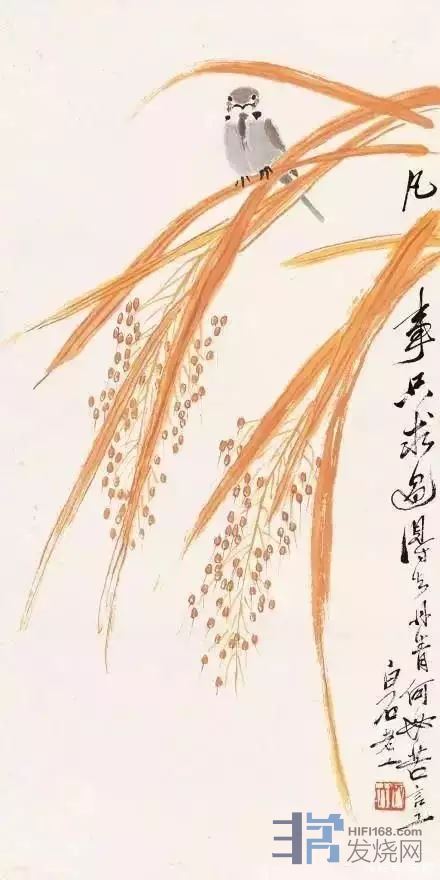 凡事只求過得去丹青何必苦言工
白石老人
HIFI168.com
发烧网